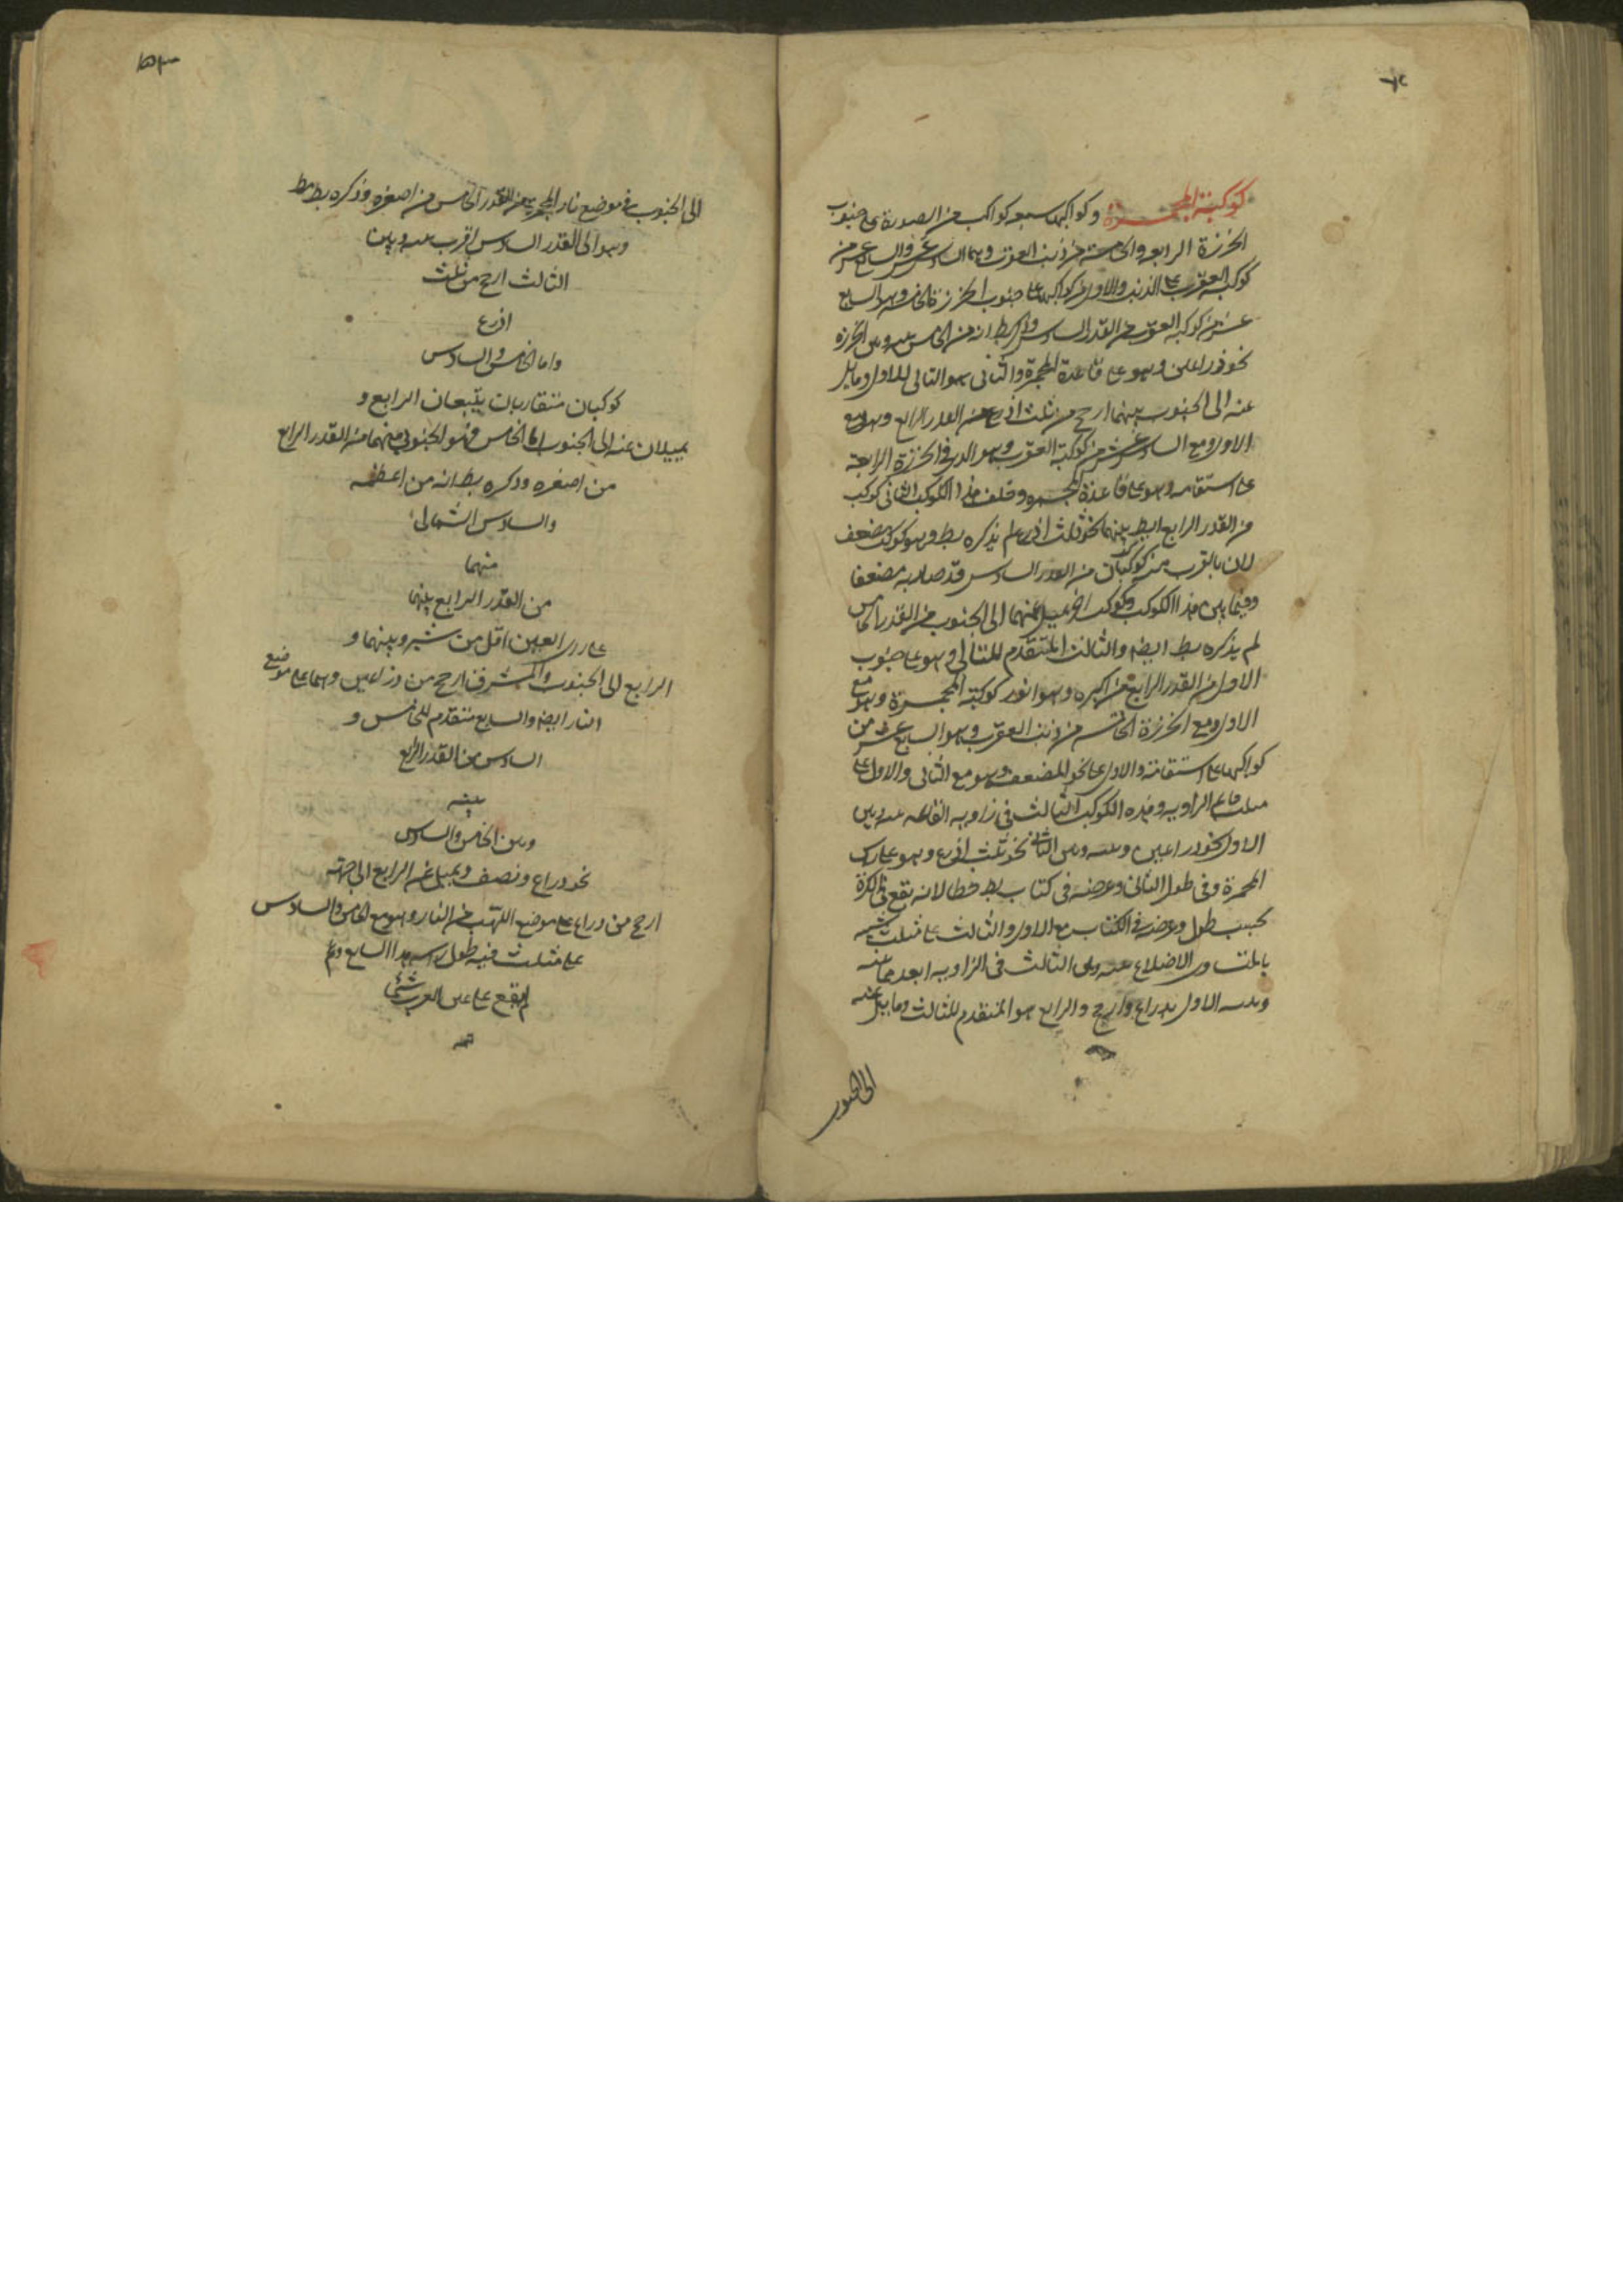 كوكبة المجمرة وكواكبها سبعه كواكب من الصورة على جنوب
الخرزة الرابعه والخامسة من ذنب العقرب وهما السادس عشر والسابع عشر من
كوكبة العقرب على الذنب والاول من كواكبها على جنوب الخرزة الخامسه وهو السابع
عشر من كوكبه العقرب من القدر السادس وذكر بط انه من الخامس بينه وبين الخرزه
نحو ذراعين وهو على قاعدة المجمرة والثانى هو التالى للاول ومايل
عنه الى الجنوب بينهما ارجح من ثلث اذرع من القدر الرابع وهو مع
الاول ومع السادس عشر من كوكبة العقرب وهو الذى فى الخرزة الرابعة
على استقامه وهو على قاعدة المجمره وخلف هذا الكوكب الثانى كوكب
من القدر الرابع ايضا بينهما نحو ثلث اذرع لم يذكره بط وهو كوكب مضعف
لان بالقرب منه كوكبان من القدر السادس قد صار به مضعفا
وفيما بين هذا الكوكب وكوكب اخر يميل عنهما الى الجنوب من القدر الخامس
لم يذكره بط ايضا والثالث المتقدم للتالى وهو على جنوب
الاول من القدر الرابع من اكبره وهو انور كوكبة المجمرة وهو مع
الاول ومع الخرزة الخامسه من ذنب العقرب وهو السابع عشر من
كواكبها على استقامة والاول على نحو المضعف وهو مع الثانى والاول على
مثلث قايم الزاويه وهذه الكوكب الثالث فى زاويه القايمه بينه وبين
الاول نحو ذراعين وبينه وبين الثانى نحو ثلث اذرع وهو على راس
المجمرة وفى طول الثانى وعرضه فى كتاب بط خطا لانه يقع فى الكرة
بحسب طول وعرضه فى الكتاب مع الاول والثالث على مثلث شبيه
بالمتساوى الاضلاع بينه وبين الثالث فى الزاويه ابعد مما بينه
وبين الاول بذراع وارجح والرابع هو المتقدم للثالث ومايل عنه
الى الجنوب
الى الجنوب فى موضع نار المجمرة من القدر الخامس من اصغره وذكره بط
وهو الى القدر السادس اقرب بينه وبين
الثالث ارجح من ثلث
اذرع
واما الخامس والسادس
كوكبان متقاربان يتبعان الرابع و
يميلان عنه الى الجنوب اما الخامس فهو الجنوبى منهما من القدر الرابع
من اصغره وذكره بط انه من اعظمه
والسادس الشمالى
منهما
من القدر الرابع بينهما
فى راى العين اقل من شبر وبينهما و
الرابع الى الجنوب والمشرق ارجح من ذراعين وهما على موضع
النار ايضا والسابع متقدم للخامس و
السادس من القدر الرابع
بينه
وبين الخامس والسادس
نحو ذراع ونصف ويميل عن الرابع الى جهته
ارجح من ذراع على موضع اللهب من النار وهو مع الخامس والسادس
على مثلث فيه طول
لم يقع على عن العرب شئ
تمه